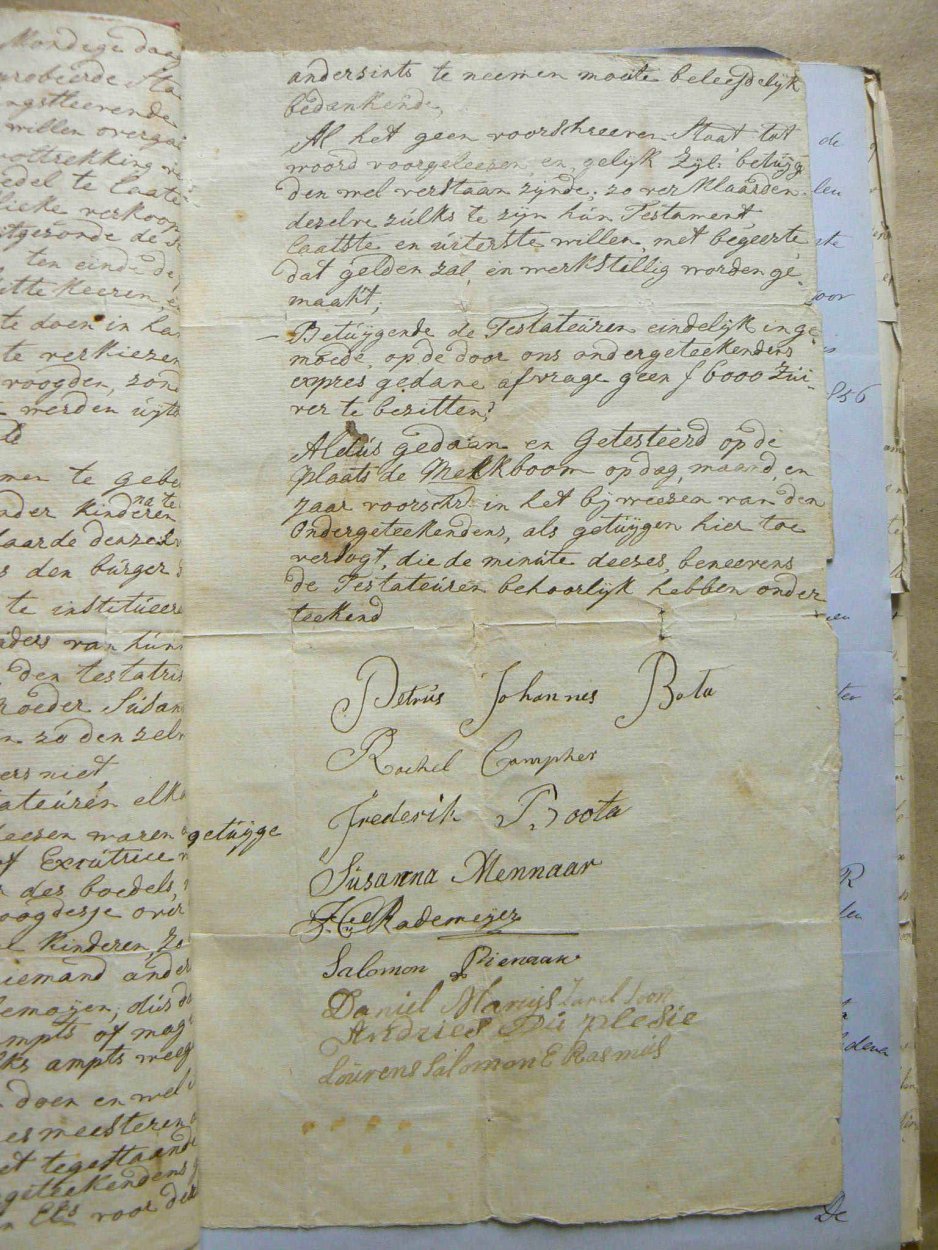 Mondige daa
probeerde Sta
ngsteerende
willen overga
voltrekking
edel te laate
lieke verkoop
itgesonde de
ten einde de
itte Keeren
te doen in ha
te verkiezen
voogden, zond
werden uijts
te
men te gebe
na te
nder Kinderen
laarde denzel
s den burger
te institueere
ders van hún
den testatri
roeder Súsan
n zo den zelv
ers niet
tateúren elka
leesen waren
of Excútrice
des boedels,
oogdesse over
Kinderen, zo
niemand ander
emoijen, dús d
mpts of mag
lks ampts weeg
doen en wel
es meesteren
et tegestaand
geteekendens
n Ets voor de
andersints te neemen moeite beleefdelijk
bedankende,
Al het geen voorschreeven Staat tot
woord voorgeleezen en gelijk Zijl: betúijg
den wel verstaan zijnde; zo verklaarden
dezelve zúlks te zijn hún Testament
laatste en úiterste willen, met begeerte
dat gelden zal, en werkstellig worden ge
maakt,
— Betúijgende de Testateúren eindelijk in ge
moede, op de door ons ondergeteekendens
expres gedane afvrage geen f 6000 Zúi-
ver te bezitten;
Aldús gedaan en Getesteerd op de
plaats de Melkboom op dag, maand, en
Jaar voorschr: in het bijweesen van den
Ondergeteekendens, als getúijgen hier toe
versogt, die de minúte deezes, beneevens
de Testateúren behoorlijk hebben onder
teekend
Petrús Johannis Bota
Rachel Campher
getúijge
Frederik Boota
Súsanna Mennaar
Rademeijer
Salomon Pienaar
Daniel Marúis Zarel Soon
Andries Dú plesie
Loúrens Salomon E Rasmús
de
leu
ste
oor
856
R
den
De